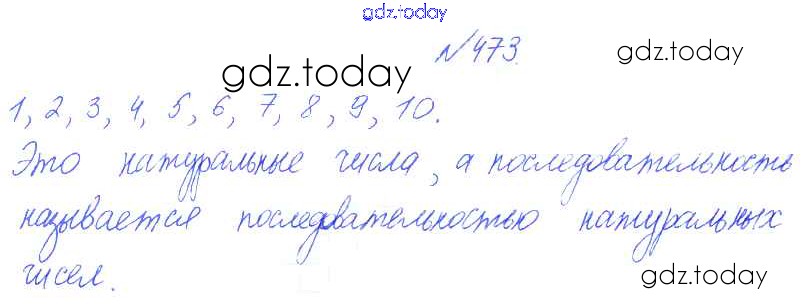 gdz.today
№473.
gdz.today
gdz.today
1, 2, 3, 4, 5, 6, 7, 8, 9, 10.
Это натуральные числа, а последовательность
называется последовательностью натуральных
чисел.
gdz.today